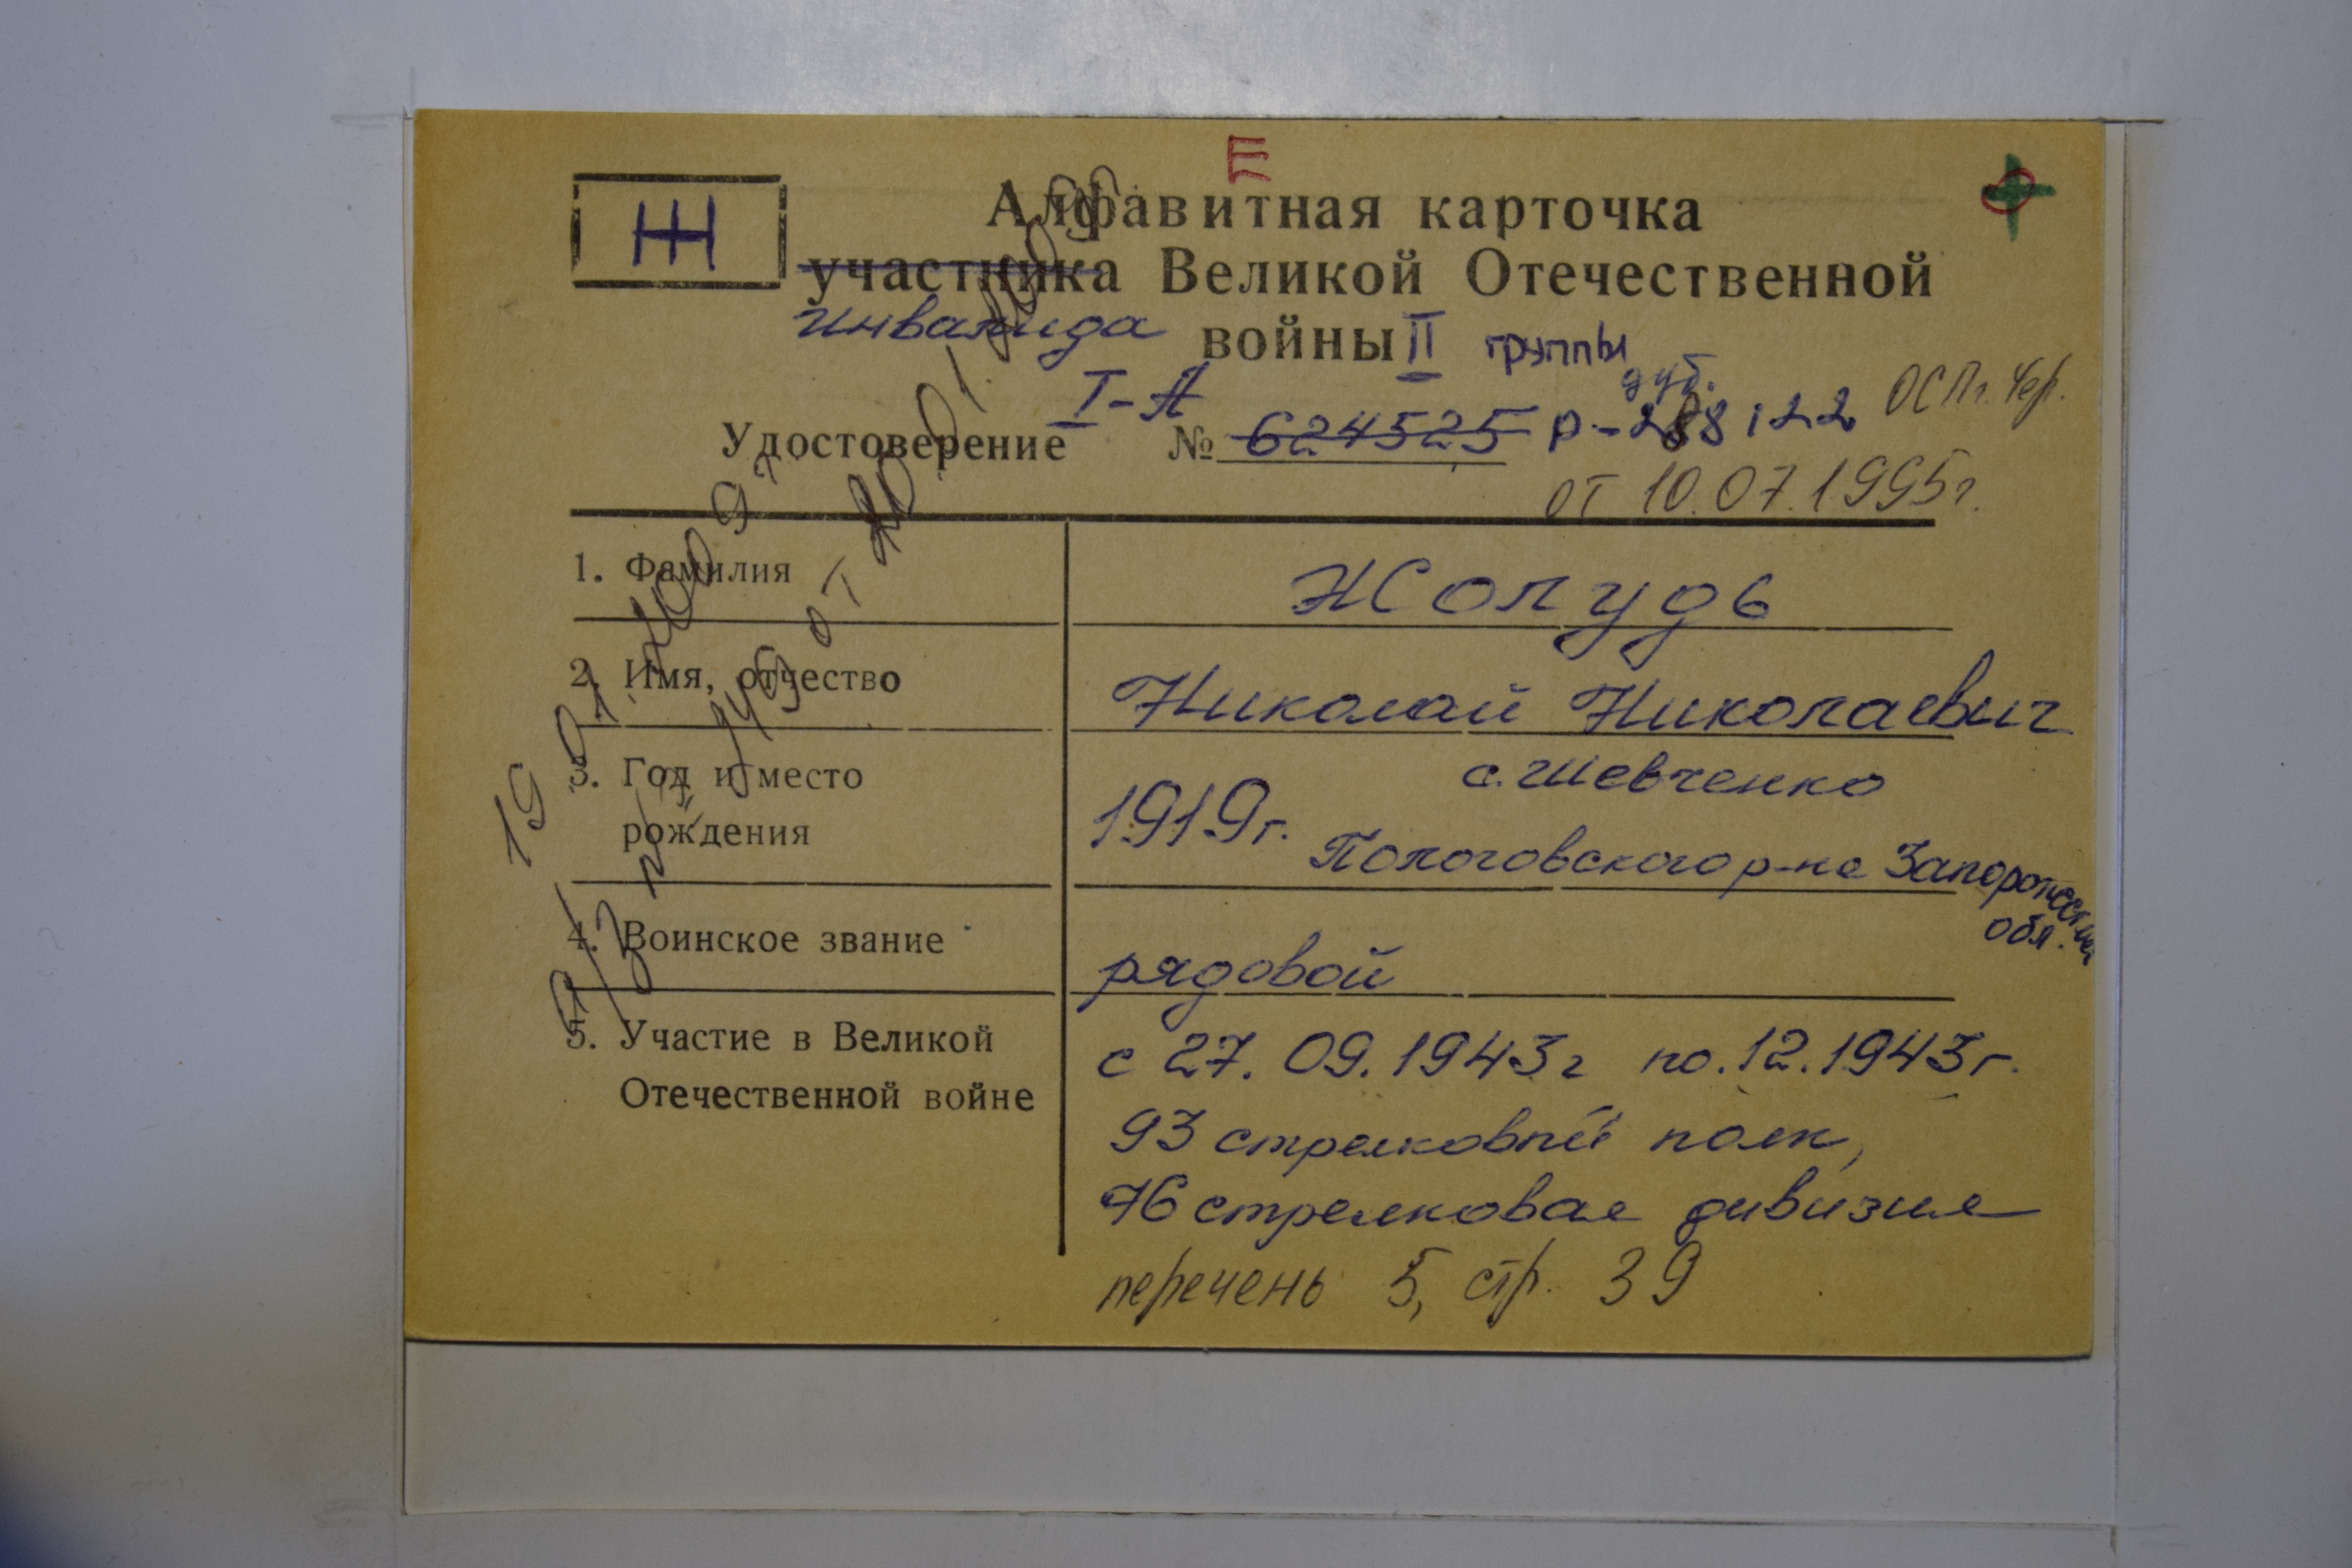 III
Ж
Алфавитная карточка
участника Великой Отечественной
Инвалида войны II группы
I-А дуб. ОСПг. Чер.
Удостоверение № 624525 Р-288122
от 10.07.1995г.
1. Фамилия Жолудь
2. Имя, отчество Николай Николаевич
3. Год и место рождения 1919г. с. Шевченко
Пологовского р-на Запорожской
обл.
4. Воинское звание рядовой
5. Участие в Великой
Отечественной войне
с 27. 09. 1943г по. 12. 1943г.
93 стрелковый полк,
76 стрелковая дивизия
перечень 5, стр. 39